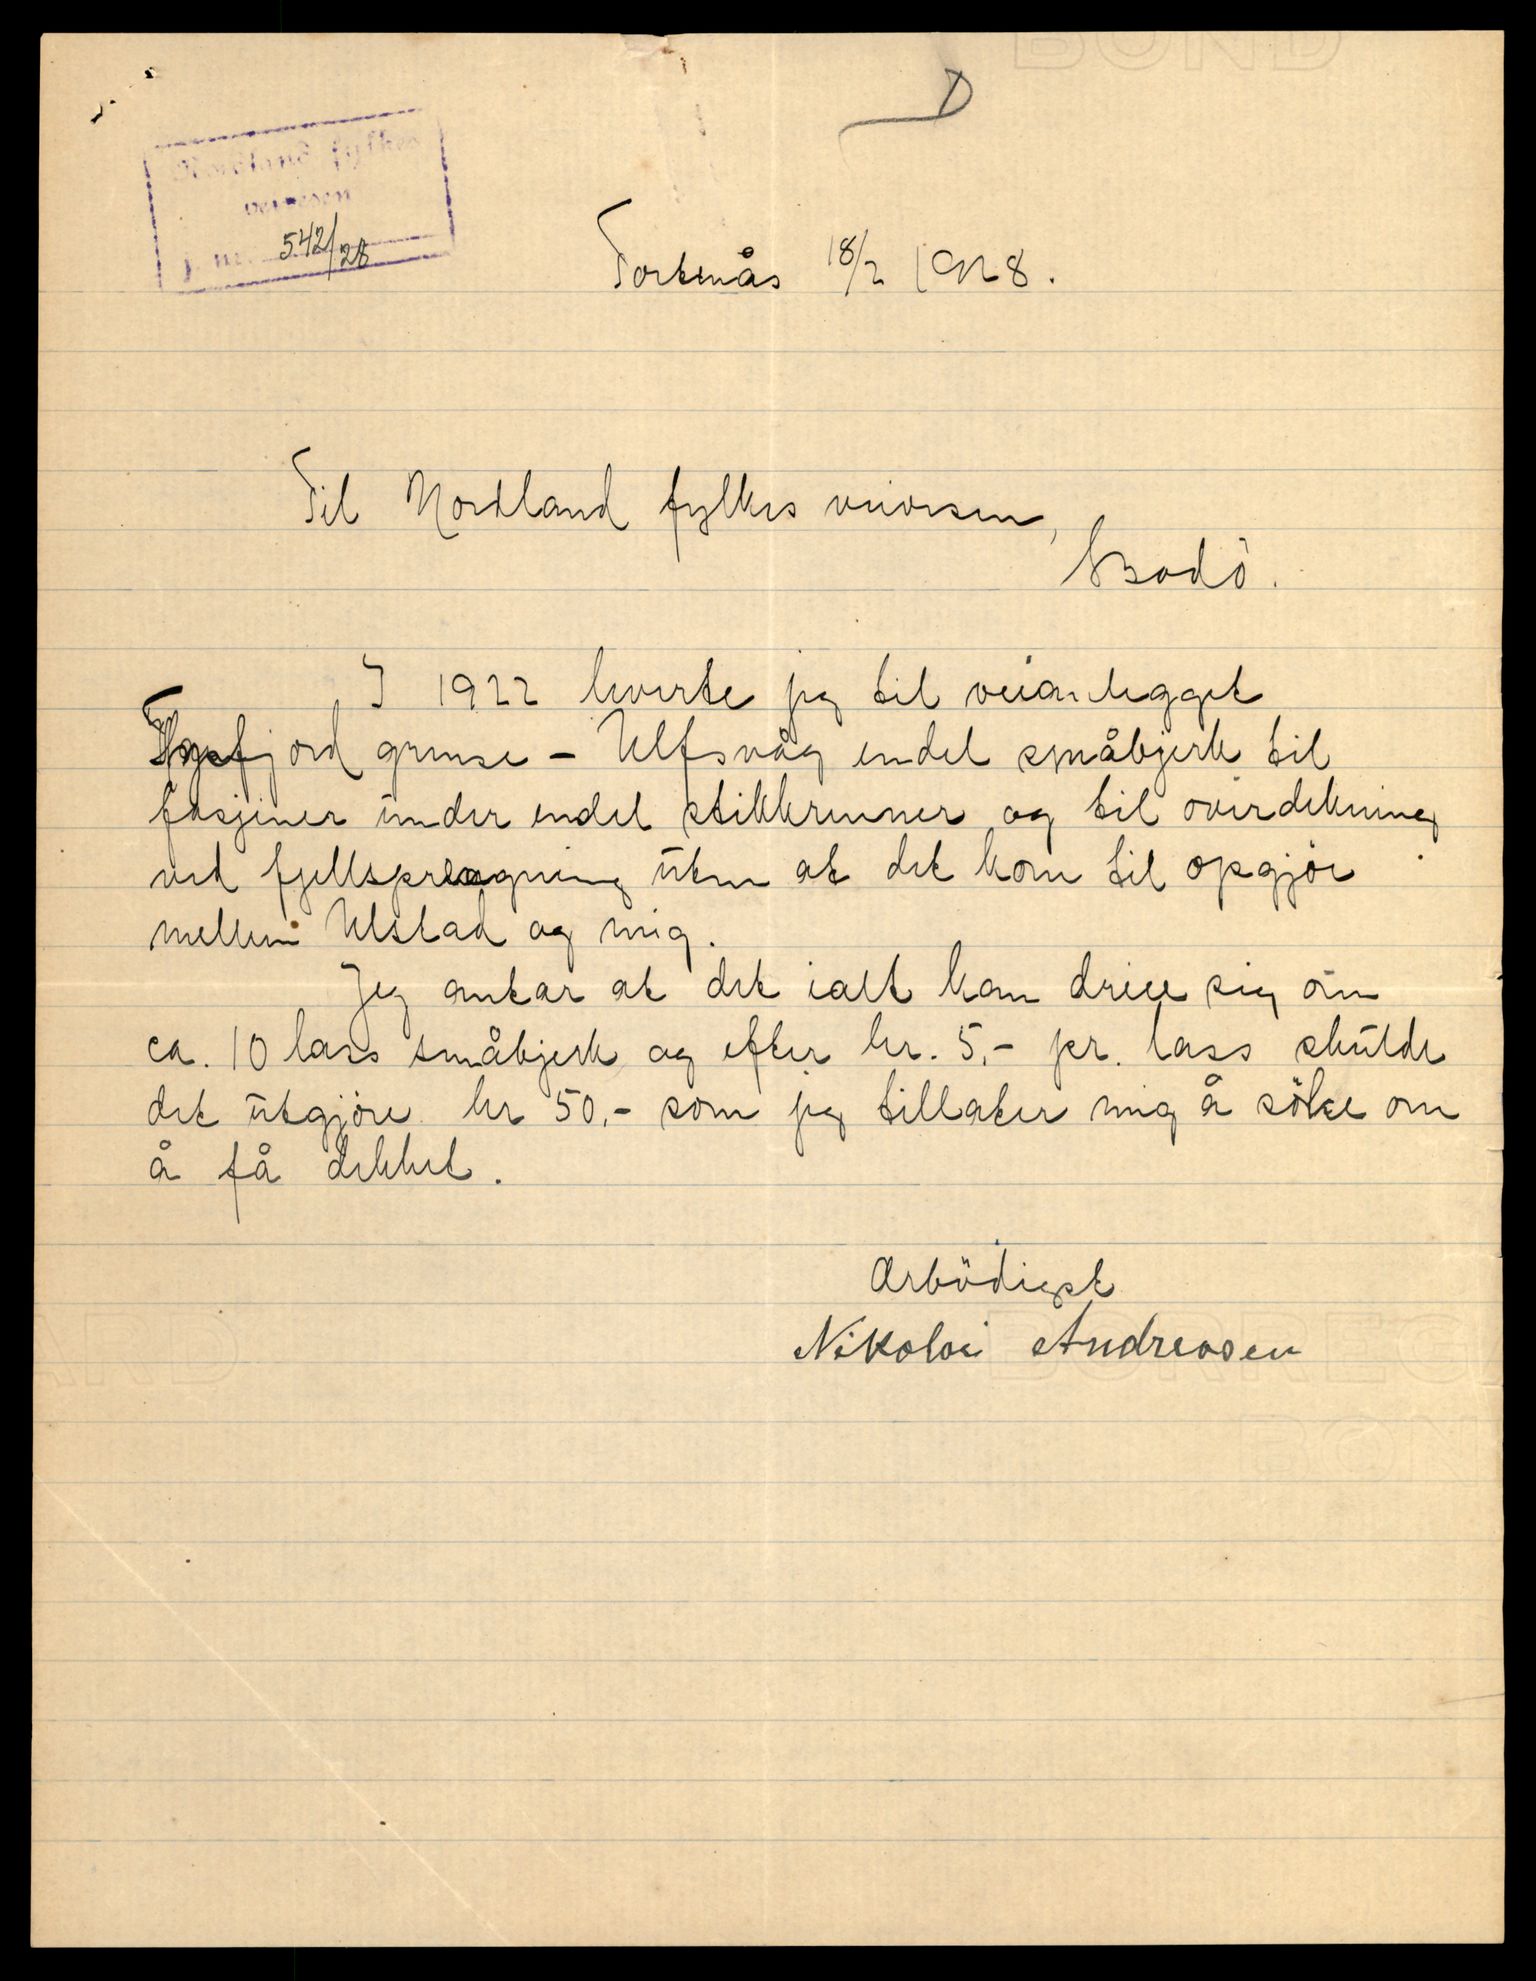 D
Nordland fylkes
veivesen
j. nr. 542/28
Tortenås 18/2 1928.
Til Nordland fylkes veivesen,
Bodö.
I 1922 leverte jeg til veianlegget
Tysfjord grense - Ulfsvåg endel småbjerk til
fasjiner under endel stikkrenner og til overdekning
ved fjellsprengning uten at det kom til opgjör
mellem Ulstad og mig.
Jeg antar at det ialt kan dreie sig om
ca. 10 lass småbjerk og efter kr. 5,- pr. lass skulde
det utgjöre kr 50,- som jeg tillater mig å söke om
å få dekket.
Ærbödigst
Nikolai Andreasen
BOND
ARD
BORREG
BON